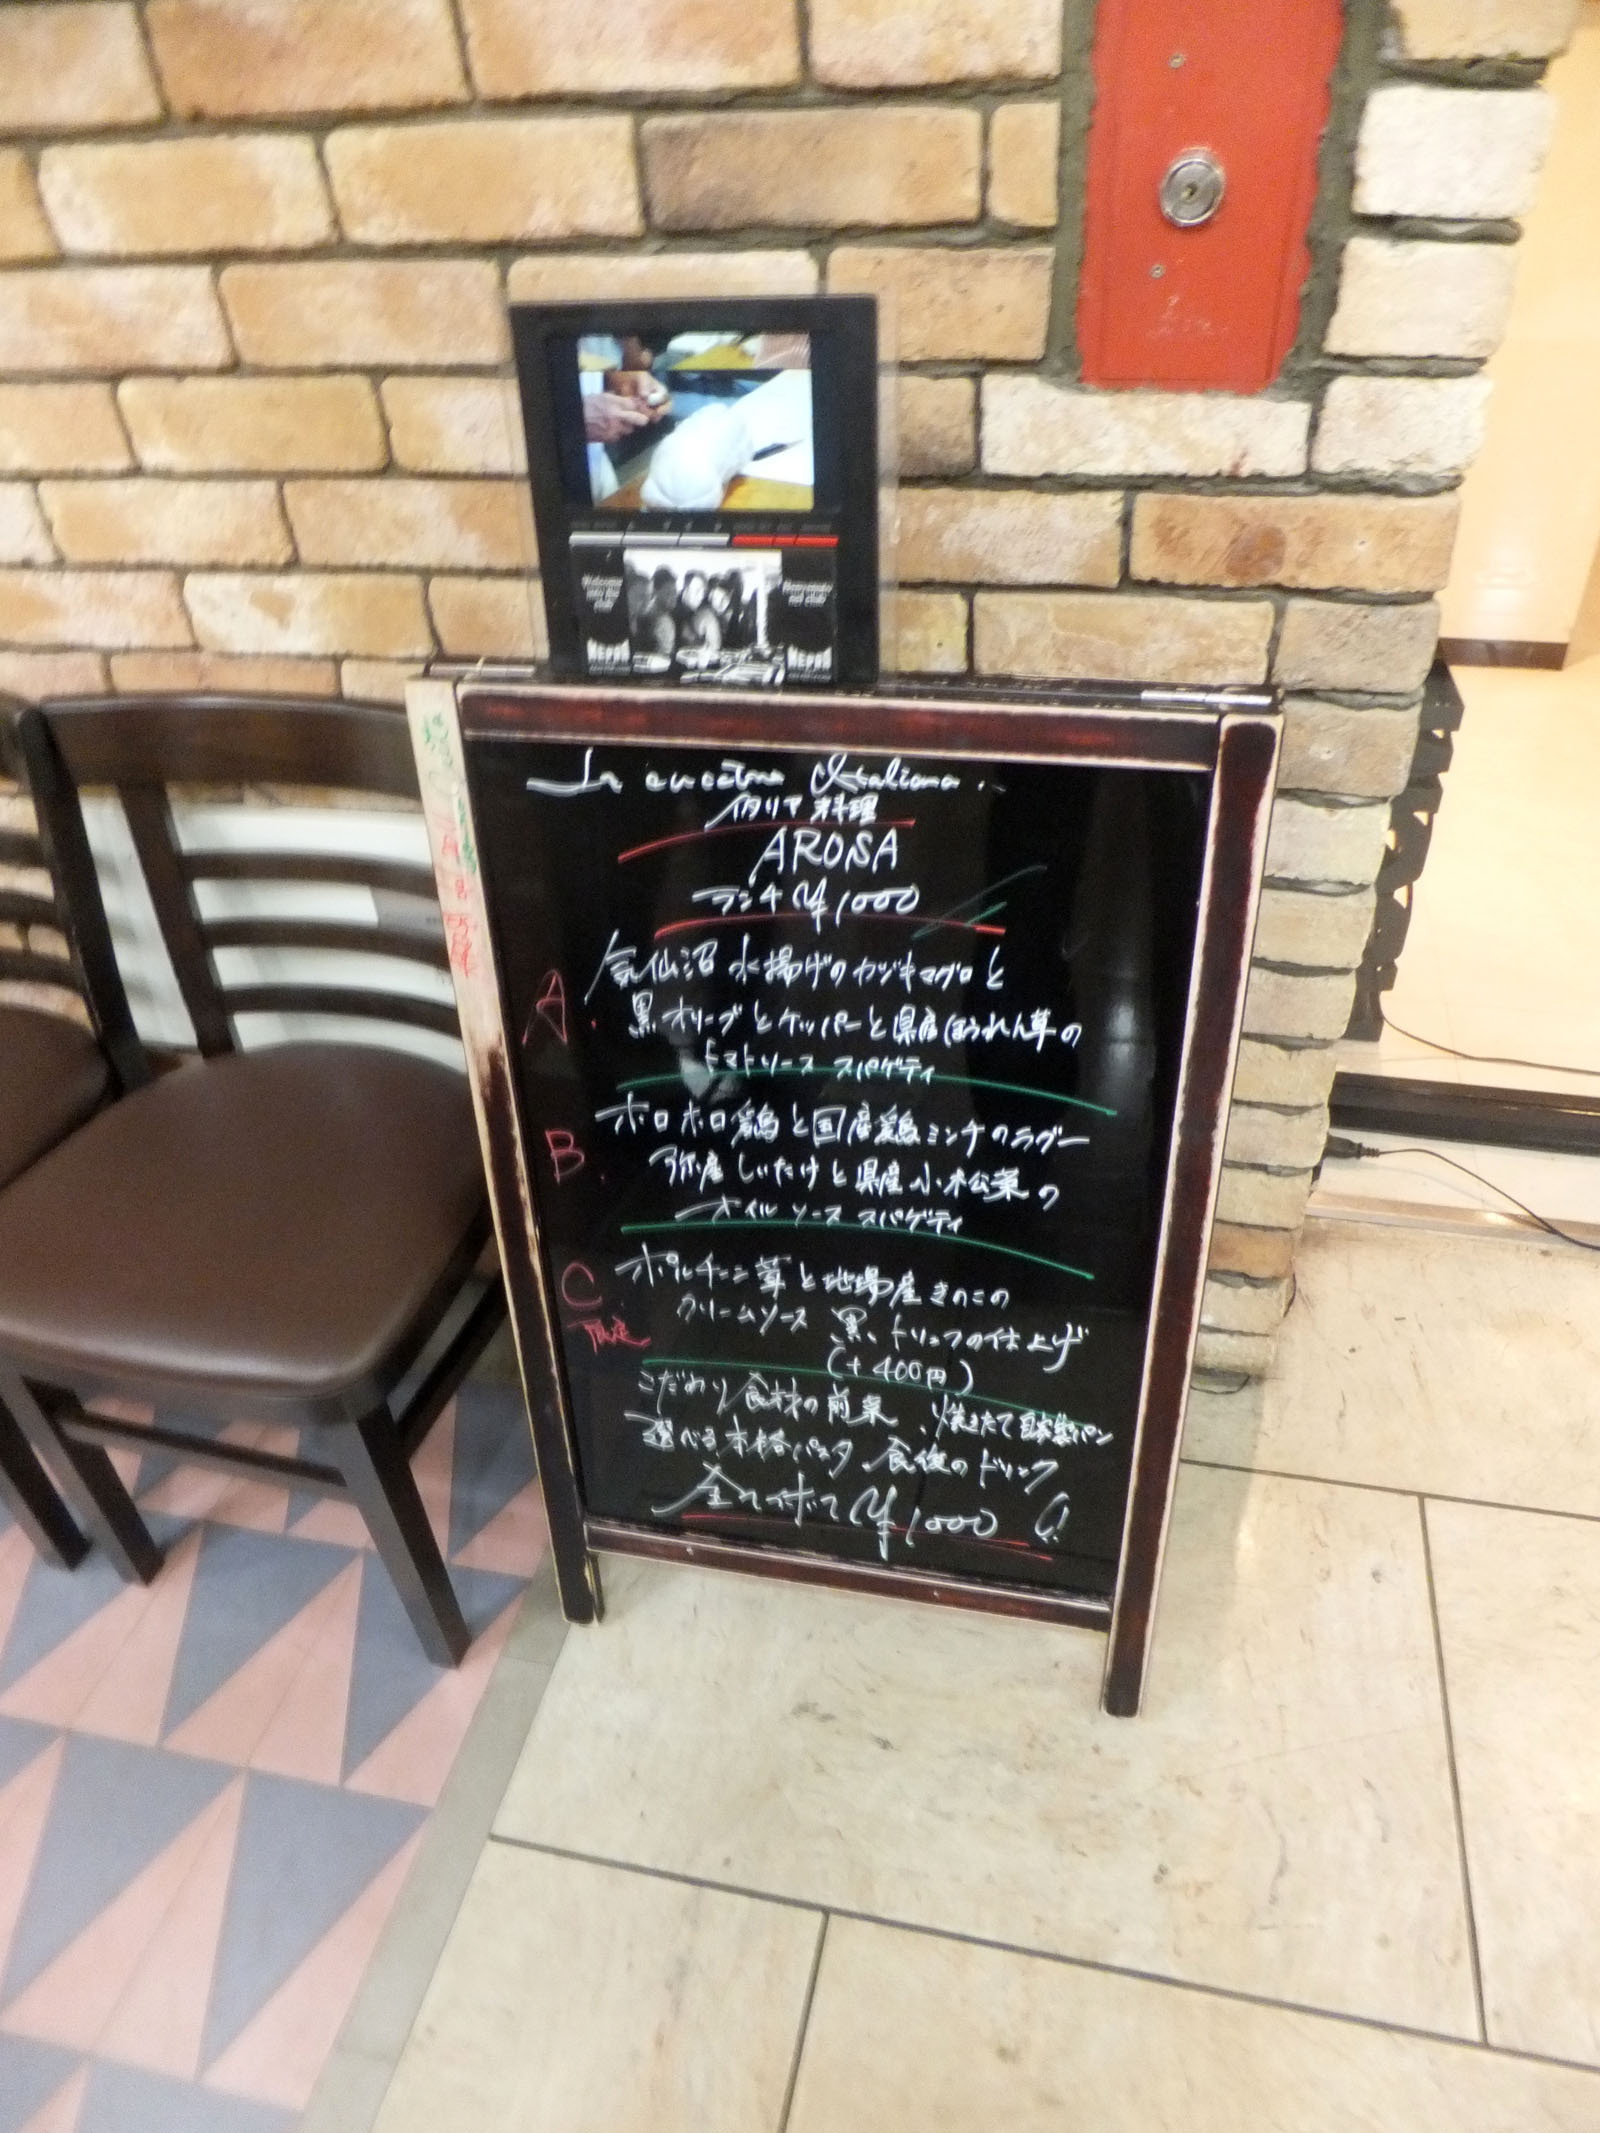 Welcome
into the
club
Benvenuto
nel club
La cucina Italiana
イタリア 料理
AROSA
ランチ ¥1000
A.
気仙沼 水揚げのカジキマグロと
黒オリーブとケッパーと県産ほうれん草の
トマトソース スパゲティ
B.
ホロホロ鶏と国産鶏ミンチのラグー
弥産しいたけと県産小松菜の
オイルソース スパゲティ
C.
限定
ポルチーニ茸と地場産きのこの
クリームソース 黒トリュフの仕上げ
(+400円)
こだわり食材の前菜、焼きたて自家製パン
選べる本格パスタ、食後のドリンク
全て付いて ¥1000